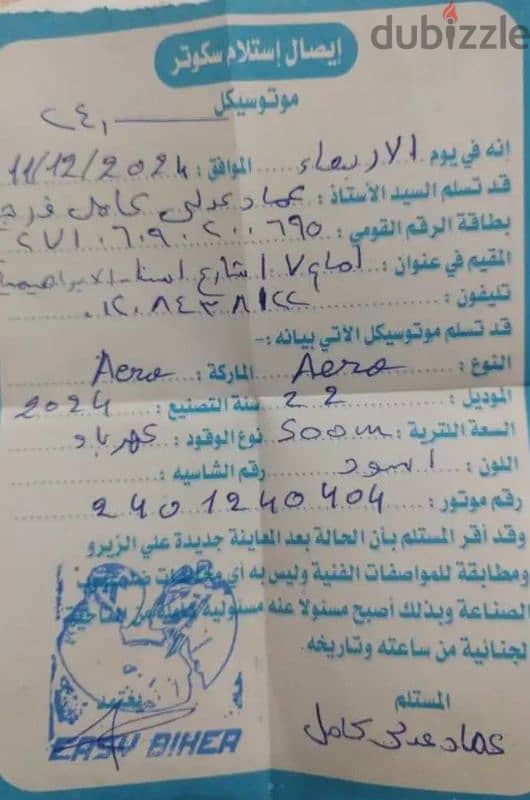 dubizzle
إيصال إستلام سكوتر
موتوسيكل
إنه في يوم الاربعاء الموافق : 11/12/2024
قد تسلم السيد الأستاذ : عماد عدلي كامل فرج
بطاقة الرقم القومي : ٢٧١٠٦٠٩٠٢٠٠٦٩٥
المقيم في عنوان : شارع الابراهيمية
تليفون : ٠١٢٠٨٤٣٨١٢٢
قد تسلم موتوسيكل الأتي بيانه :-
النوع : Aero الماركة : Aero
الموديل : 22 سنة التصنيع : 2024
السعة اللترية : 500 m نوع الوقود : كهرباء
اللون : اسود رقم الشاسيه :
رقم موتور : 2401240404
وقد أقر المستلم بأن الحالة بعد المعاينة جديدة علي الزيرو
ومطابقة للمواصفات الفنية وليس به أي
لصناعة وبذلك أصبح مسئولا عنه مسئولية كاملة من الناحية
لجنائية من ساعته وتاريخه.
المستلم يعتمد
عماد عدلي كامل
EASY BIKER